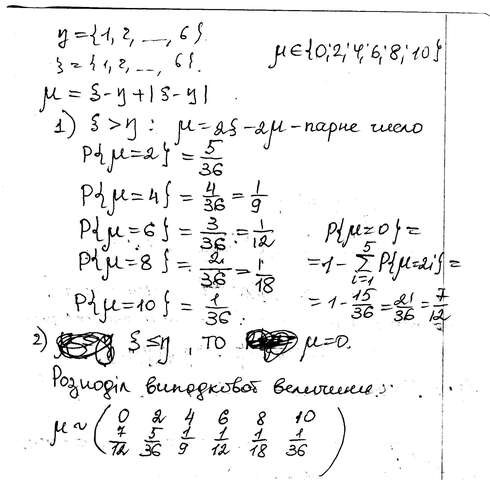 η = {1, 2, ..., 6}.
ξ = {1, 2, ..., 6}.
μ ∈ {0; 2; 4; 6; 8; 10}
μ = ξ - η + |ξ - η|
1) ξ > η : μ = 2ξ - 2μ - парне число
P{μ=2} = 5/36
P{μ=4} = 4/36 = 1/9
P{μ=6} = 3/36 = 1/12
P{μ=8} = 2/36 = 1/18
P{μ=10} = 1/36.
P{μ=0} =
= 1 - ∑_{i=1}^{5} P{μ=2i} =
= 1 - 15/36 = 21/36 = 7/12
2) ξ ≤ η, то μ=0.
Розподіл випадкової величини:
μ ~ ( 0 2 4 6 8 10
7/12 5/36 1/9 1/12 1/18 1/36 )